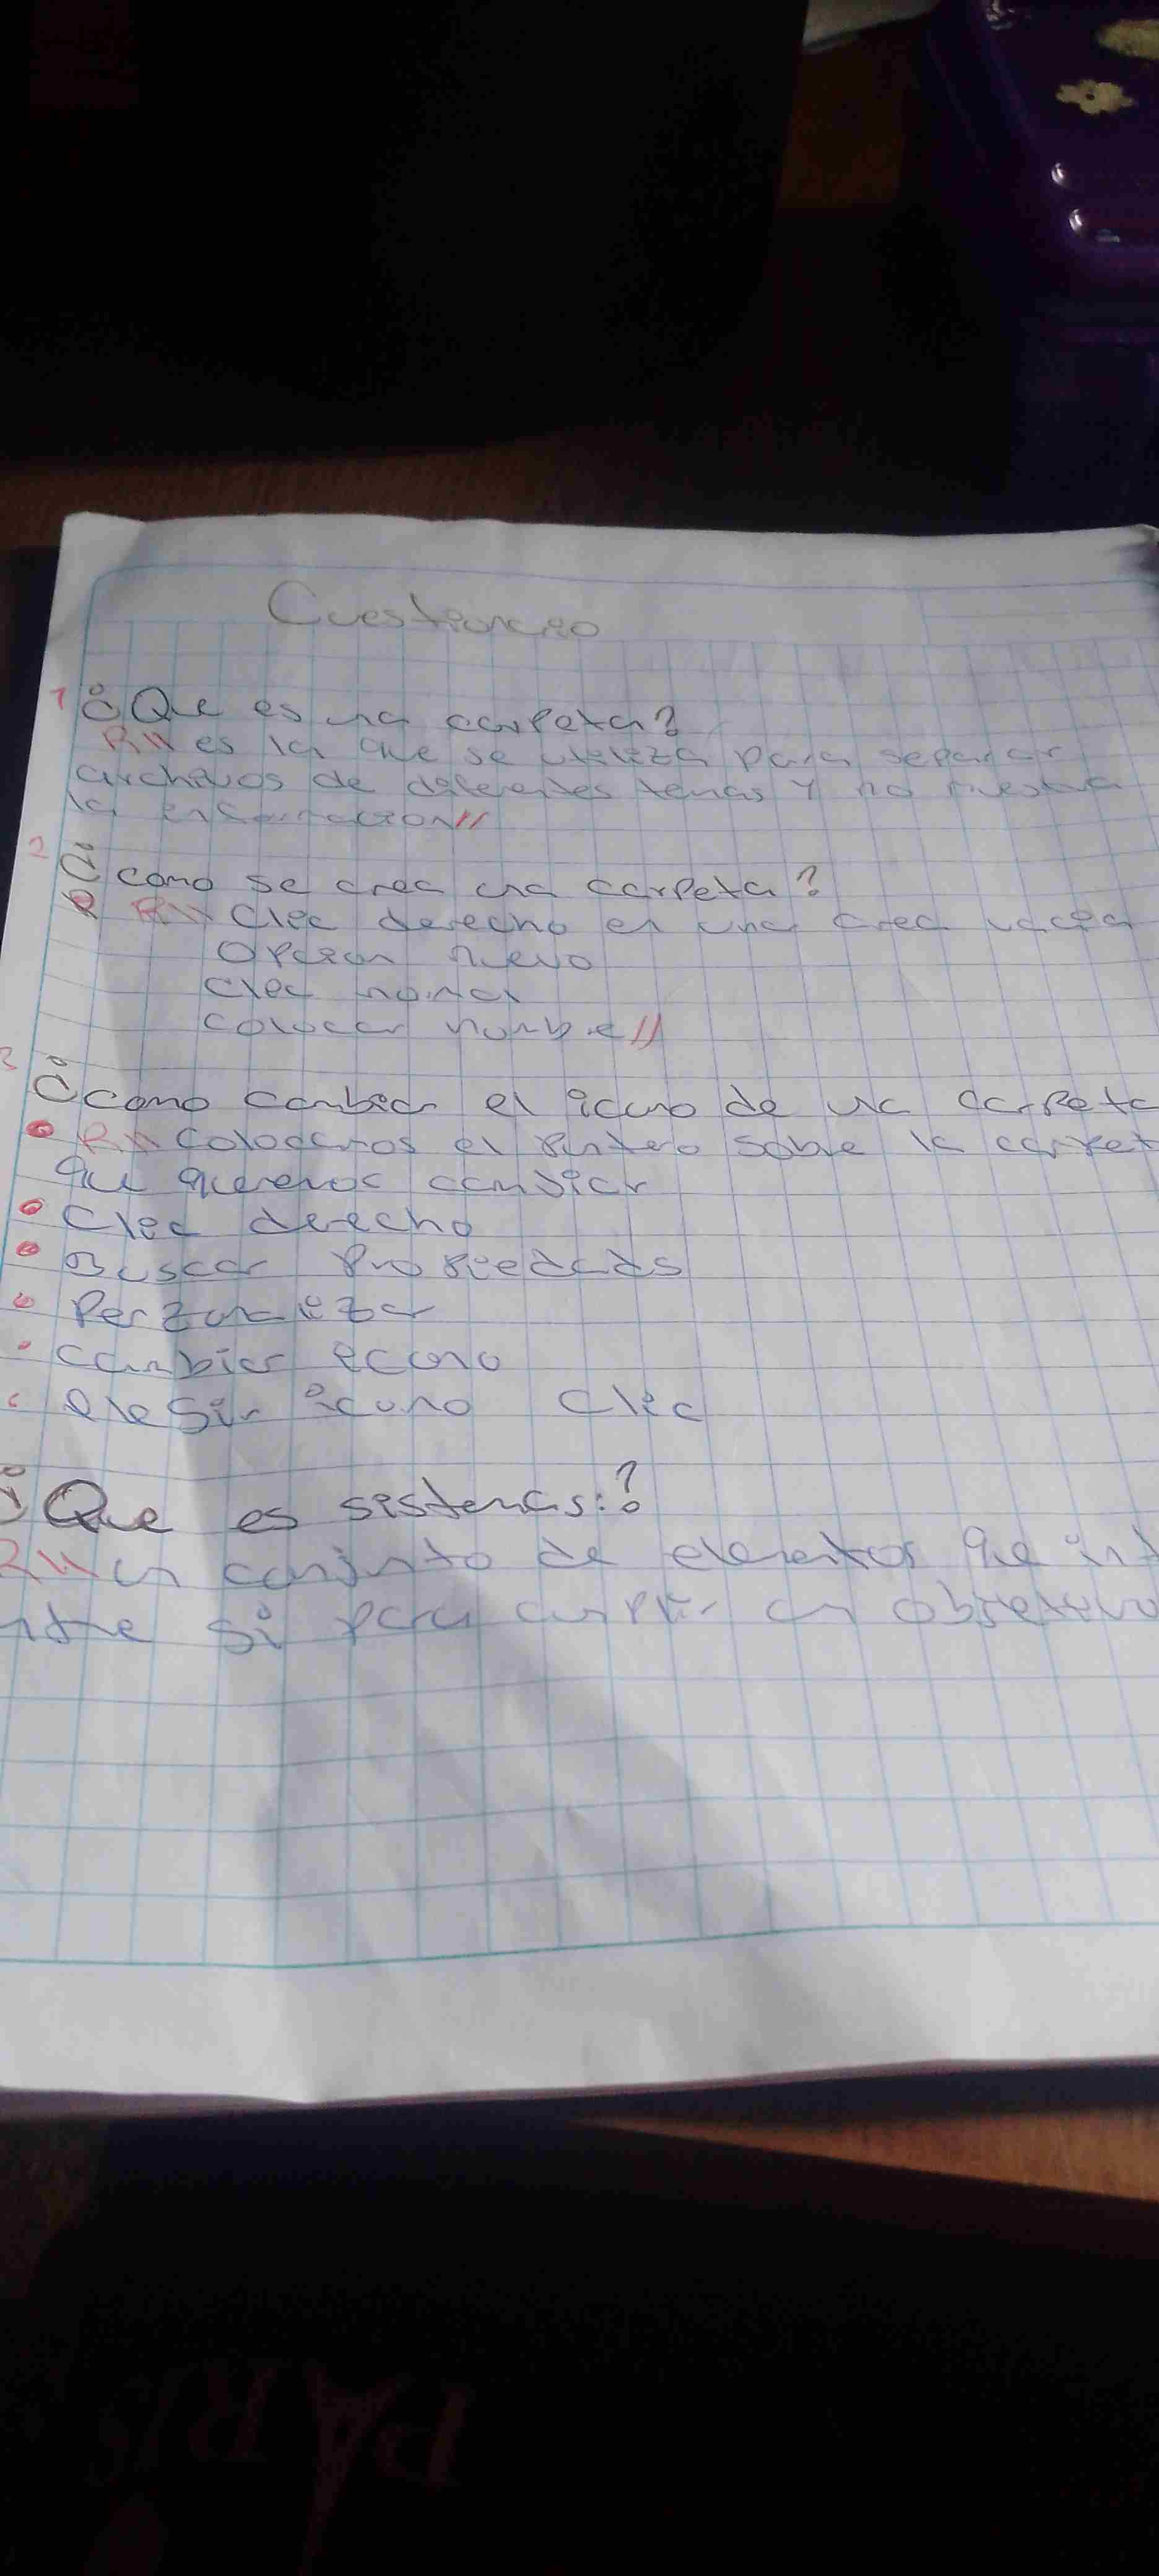 Cuestionario
1 ¿Que es una carpeta?
R// es la que se uteleza para separar
archivos de deferentes temas y no muestra
la enformacion//
2
¿como se crea una carpeta?
R// Clec derecho en una area vacea
Opceon nuevo
Clec normal
colocar nombre//
3
¿como cambiar el icono de una carpeta
R// Colocamos el puntero sobre la carpet
que queremos cambiar
Clec derecho
Buscar Propiedades
Perzonalezar
cambiar econo
elegir icono Clic
¿Que es sistemas:?
R// un conjunto de elementos que int
ntre si para cumplir un objetevo